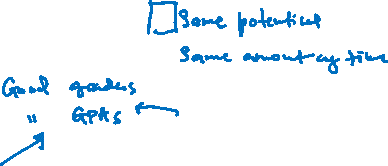 Same potential
Same amount of time
Good grades
" GPAs